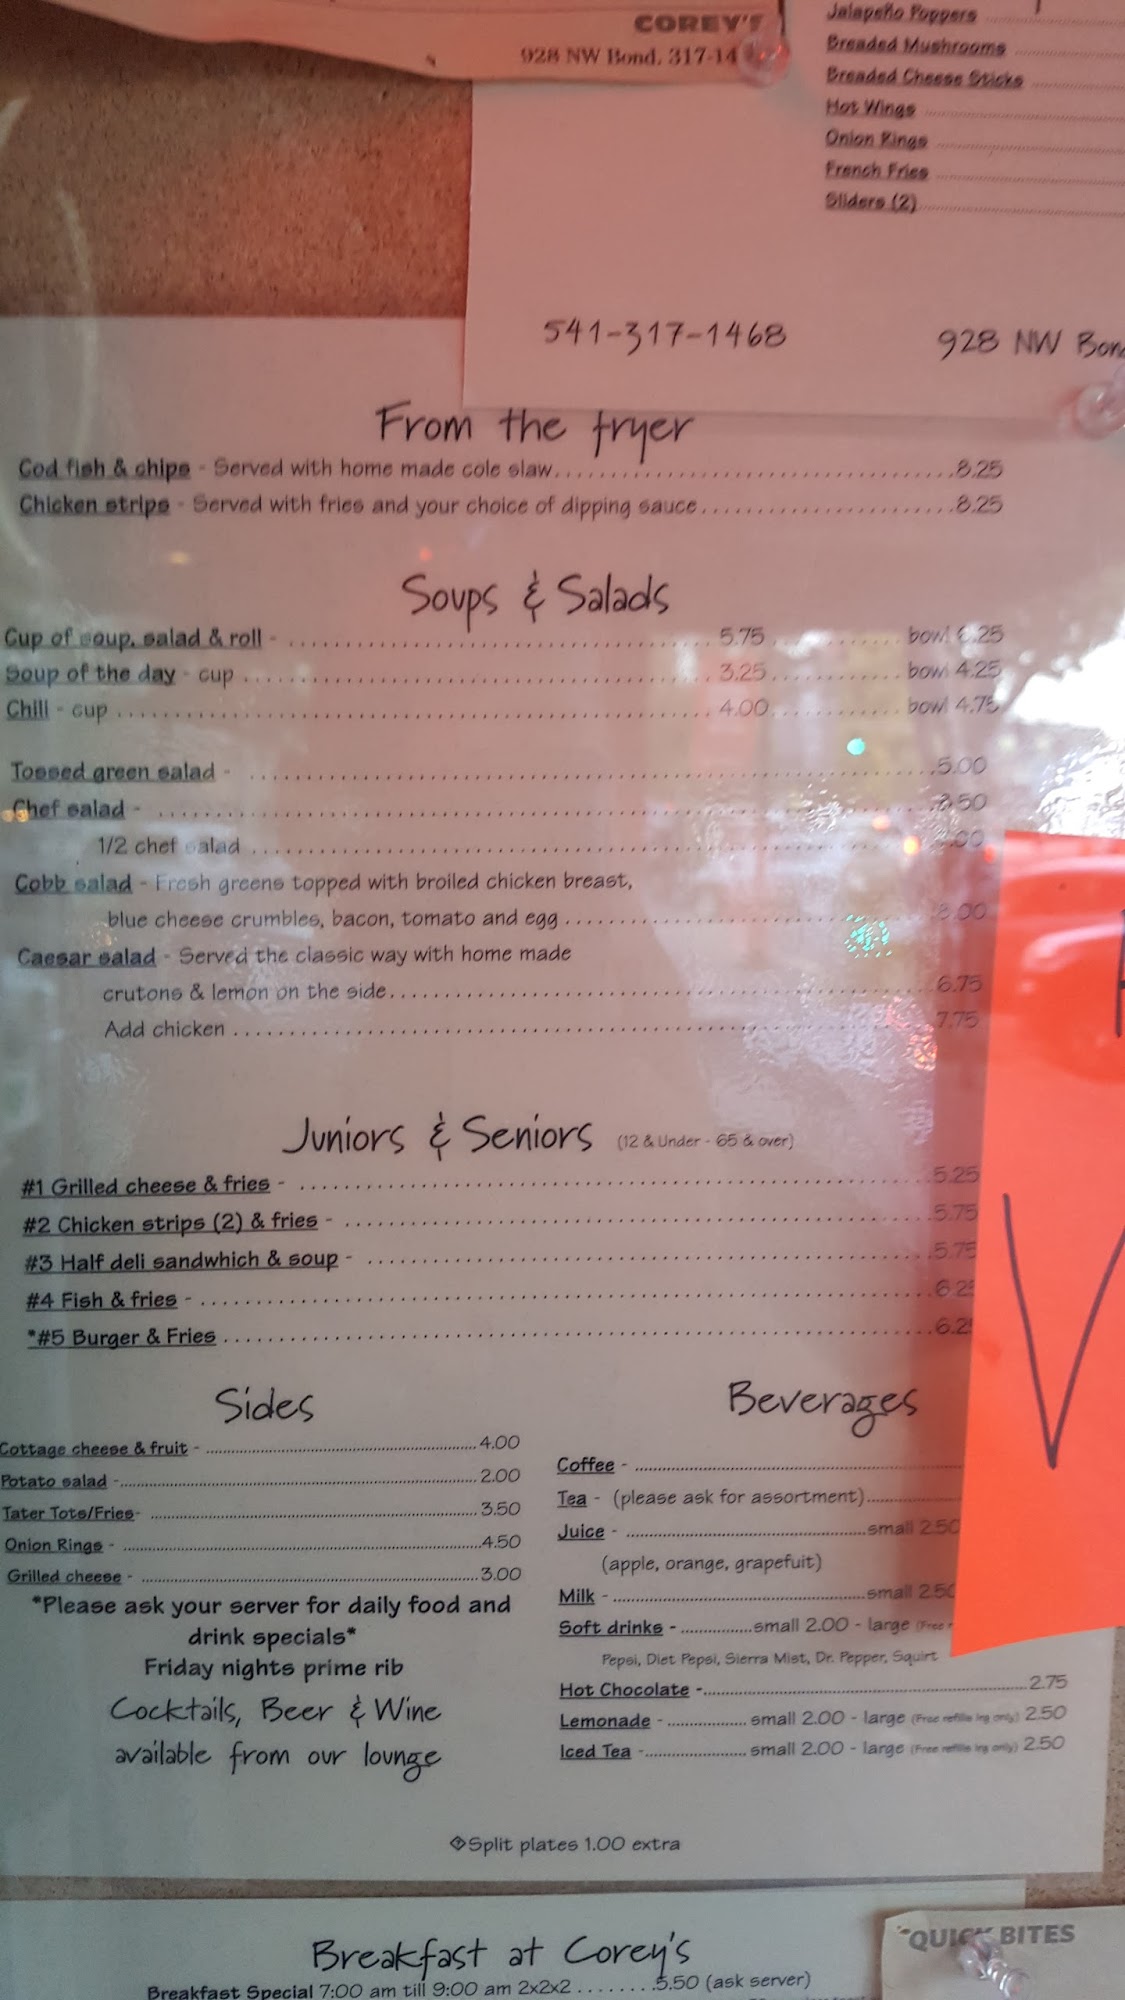 COREY'S
928 NW Bond, 317-14
Jalapeño Poppers
Breaded Mushrooms
Breaded Cheese Sticks
Hot Wings
Onion Rings
French Fries
Sliders (2)
541-317-1468 928 NW Bond
From the fryer
Cod fish & chips - Served with home made cole slaw 8.25
Chicken strips - Served with fries and your choice of dipping sauce 8.25
Soups & Salads
Cup of soup, salad & roll - 5.75 bowl 6.25
Soup of the day - cup 3.25 bowl 4.25
Chili - cup 4.00 bowl 4.75
Tossed green salad - 5.00
Chef salad -
1/2 chef salad
Cobb salad - Fresh greens topped with broiled chicken breast,
blue cheese crumbles, bacon, tomato and egg 8.00
Caesar salad - Served the classic way with home made
crutons & lemon on the side 6.75
Add chicken 7.75
Juniors & Seniors (12 & Under - 65 & over)
#1 Grilled cheese & fries - 5.25
#2 Chicken strips (2) & fries - 5.75
#3 Half deli sandwhich & soup - 5.75
#4 Fish & fries - 6.25
*#5 Burger & Fries 6.25
Sides
Cottage cheese & fruit - 4.00
Potato salad - 2.00
Tater Tots/Fries- 3.50
Onion Rings - 4.50
Grilled cheese - 3.00
*Please ask your server for daily food and
drink specials*
Friday nights prime rib
Cocktails, Beer & Wine
available from our lounge
Beverages
Coffee -
Tea - (please ask for assortment)
Juice - small 2.50
(apple, orange, grapefuit)
Milk - small 2.50
Soft drinks - small 2.00 - large (Free
Pepsi, Diet Pepsi, Sierra Mist, Dr. Pepper, Squirt
Hot Chocolate - 2.75
Lemonade - small 2.00 - large (Free refills lrg only) 2.50
Iced Tea - small 2.00 - large (Free refills lrg only) 2.50
V
Split plates 1.00 extra
Breakfast at Corey's
Breakfast Special 7:00 am till 9:00 am 2x2x2 5.50 (ask server)
"QUICK BITES